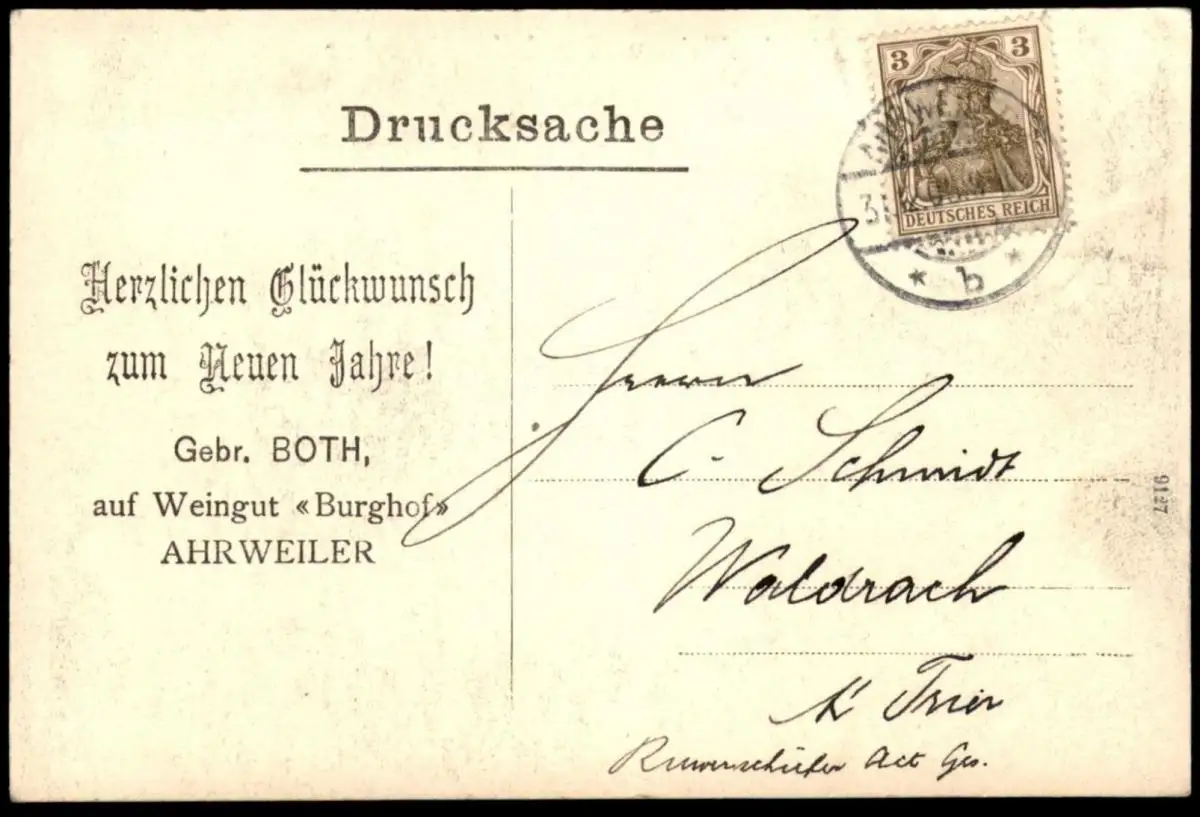 Drucksache
3 3
DEUTSCHES REICH
* b *
Herzlichen Glückwunsch
zum Neuen Jahre!
Gebr. BOTH,
auf Weingut «Burghof»
AHRWEILER
Herrn
C. Schmidt
Waldrach
b/ Trier
Ruwerschiefer Act Ges.
9127